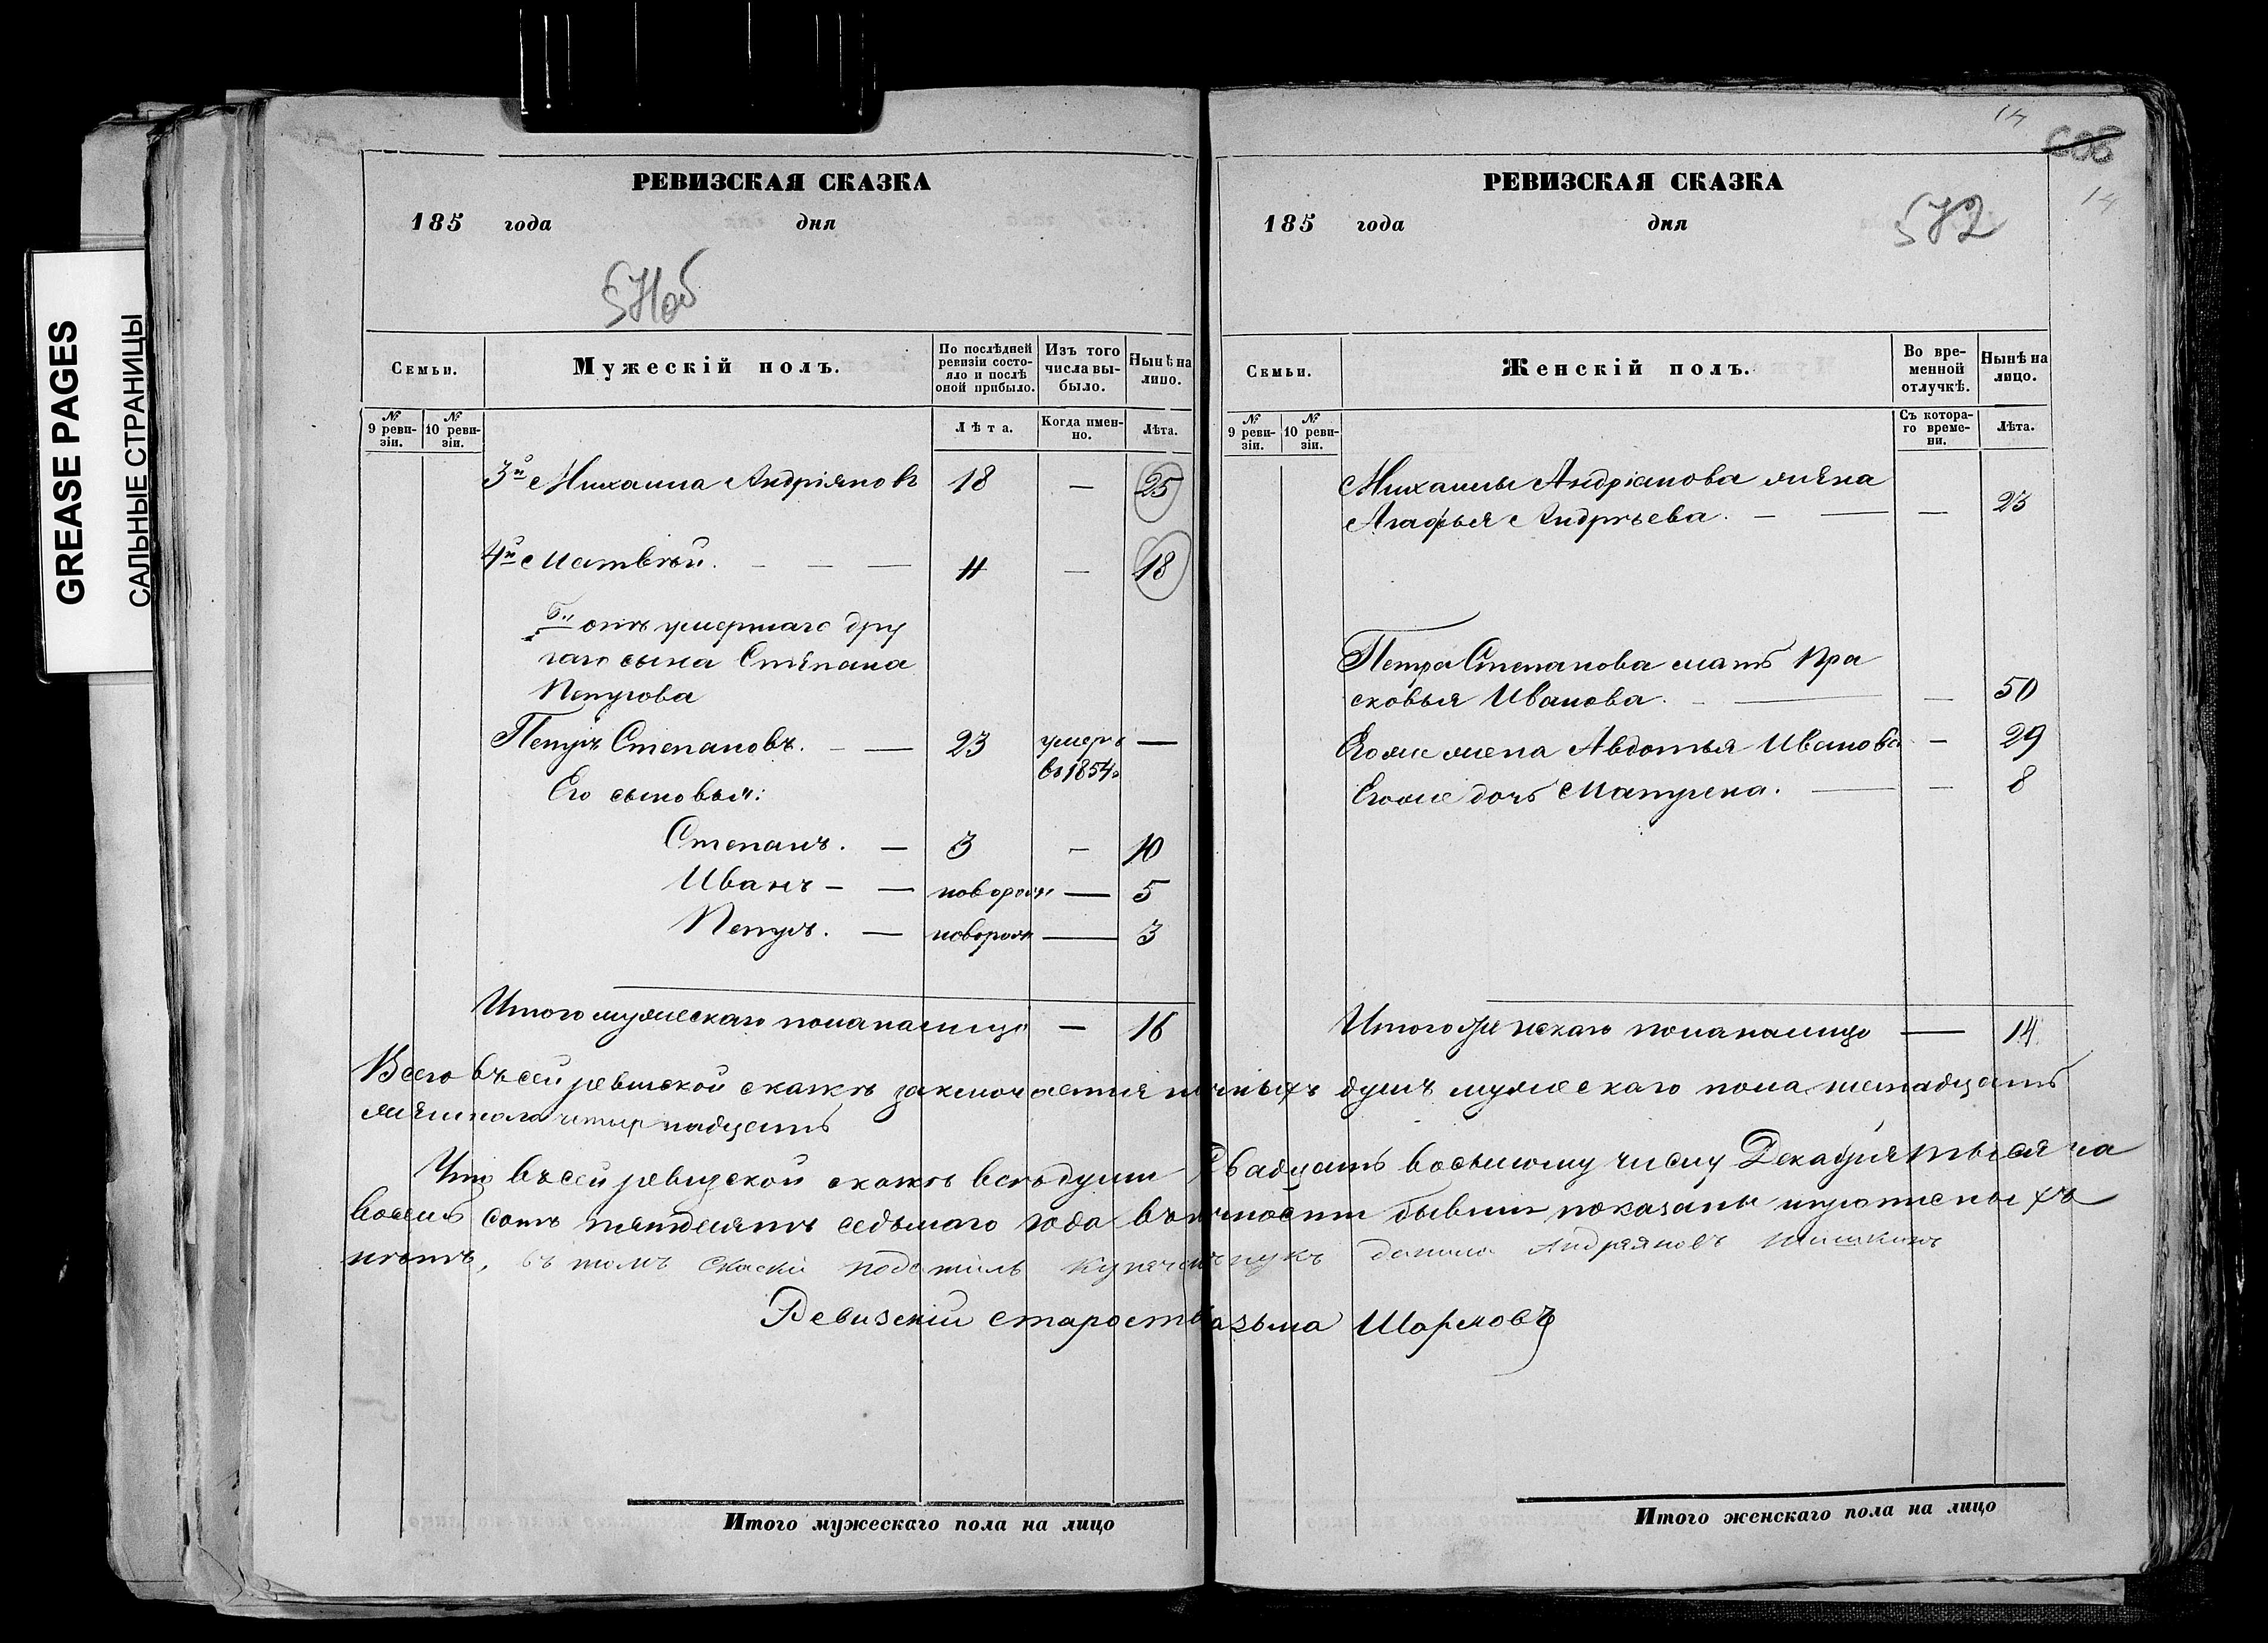 GREASE PAGES
САЛЬНЫЕ СТРАНИЦЫ
РЕВИЗСКАЯ СКАЗКА
185 года дня
571об
Семьи.
Мужескій полъ.
По послѣдней ревизіи состояло и послѣ оной прибыло.
Изъ того числа выбыло.
Нынѣ на лицо.
№ 9 ревизіи.
№ 10 ревизіи.
Лѣта.
Когда именно.
Лѣта.
3й Михаила Андріяновъ 18 — 25
4й Матвѣй. — — — 11 — 18
отъ умершаго дру
гаго сына Степана
Петрова
Петръ Степановъ. — — 23 умеръ —
въ 1854г
Его сыновья:
Степанъ. — 3 — 10
Иванъ — — новорож — 5
Петръ. — новорож — 3
Итого мужескаго пола налицо — 16
РЕВИЗСКАЯ СКАЗКА
185 года дня
14
572
14
Семьи.
Женскій полъ.
Во временной отлучкѣ.
Нынѣ на лицо.
№ 9 ревизіи.
№ 10 ревизіи.
Съ котораго времени.
Лѣта.
Михаилы Андріанова жена
Агафья Андрѣева. — — — 23
Петра Степанова мать Пра
сковья Иванова. — — 50
Его же жена Авдотья Иванова — 29
Его же дочь Матрена. — — 8
Итого женскаго пола налицо — 14.
Всего въ сей ревиской сказкѣ заключается наличныхъ душъ мужескаго пола шестнадцать
женскаго четырнадцать
Что въ сей ревизской сказкѣ всѣ души Двадцать восьмому числу Декабря тысяча
восемь сотъ пятдесятъ седьмаго года въ личности бывши показаны и упомненыхъ
нѣтъ, въ томъ Данила Андряновъ Шишкинъ
Ревизскій староста Козьма Шарковъ
Итого мужескаго пола на лицо
Итого женскаго пола на лицо